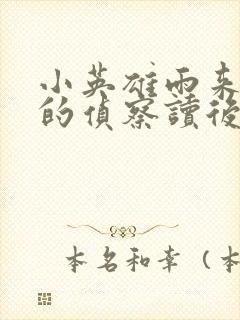 小英雄雨来
的偵察讀後
本名和幸（本